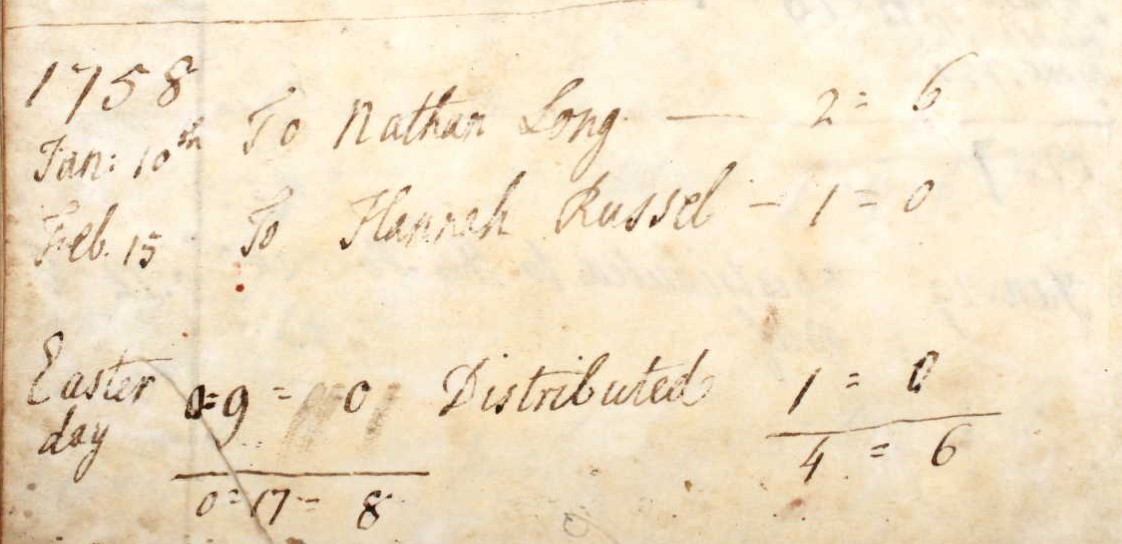 1758
Jan: 10th To Nathan Long — 2 = 6
Feb. 15 To Hannah Russel - 1 = 0
Easter 0=9 = 0 Distributed 1 = 0
day
4 = 6
0=17= 8